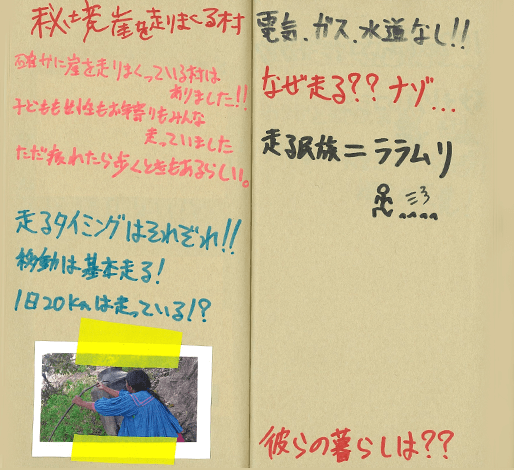 秘境崖を走りまくる村
確かに崖を走りまくっている村は
ありました!!
子どもも女性もお年寄りもみんな
走っていました
ただ疲れたら歩くときもあるらしい。
走るタイミングはそれぞれ!!
移動は基本走る!
1日20kmは走っている!?
電気、ガス、水道なし!!
なぜ走る??ナゾ...
走る民族=ララムリ
彼らの暮らしは??